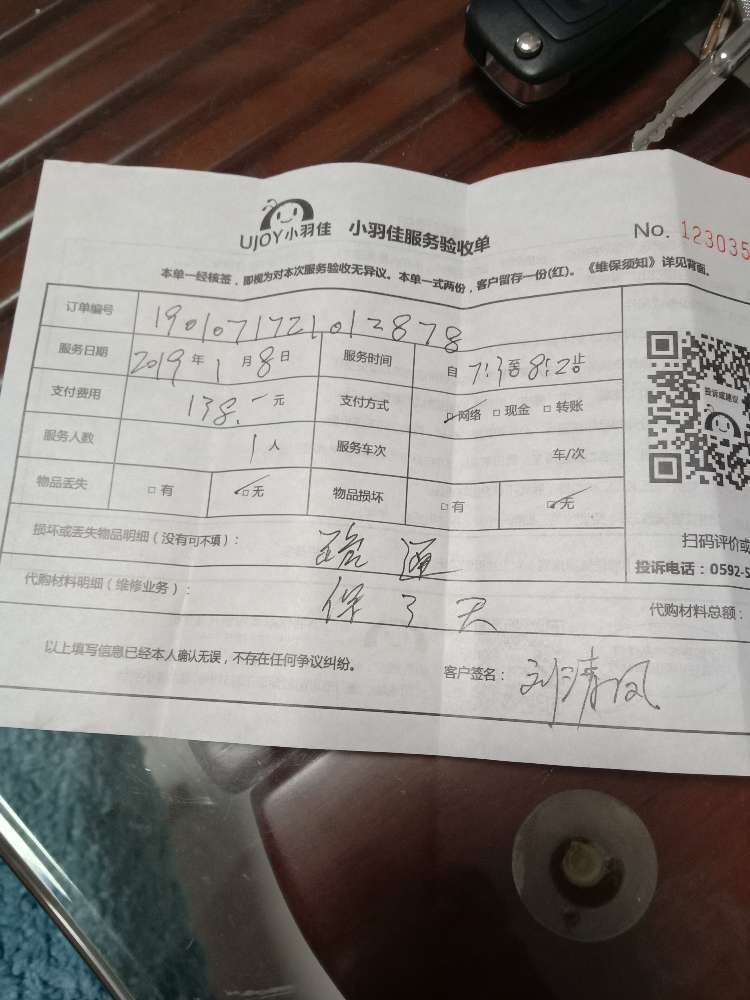 UJOY小羽佳 小羽佳服务验收单
No. 123035
本单一经核签，即视为对本次服务验收无异议。本单一式两份，客户留存一份(红)。《维保须知》详见背面。
订单编号 1901071721012878
服务日期 2019年1月8日 服务时间 自7:3至8:20止
支付费用 138.一元 支付方式 □网络 □现金 □转账
服务人数 1人 服务车次 车/次
物品丢失 □有 □无 物品损坏 □有 □无
投诉或建议
扫码评价或
投诉电话：0592-5
损坏或丢失物品明细（没有可不填）： 通
代购材料明细（维修业务）： 保3天
代购材料总额：
以上填写信息已经本人确认无误，不存在任何争议纠纷。
客户签名： 刘清风